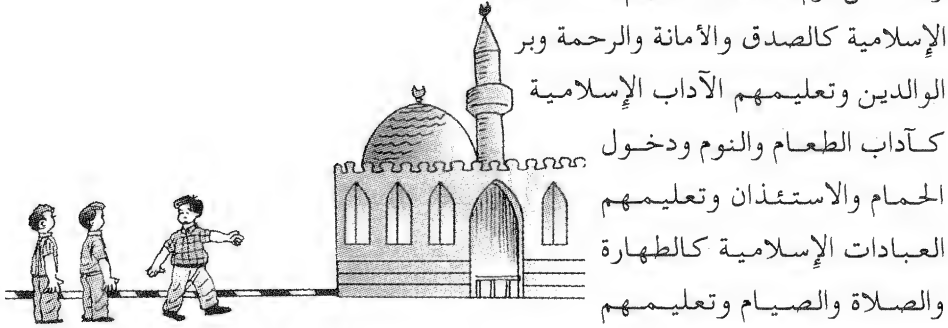 الإِسلامية كالصدق والأمانة والرحمة وبر
الوالدين وتعليمهم الآداب الإِسلامية
كآداب الطعام والنوم ودخول
الحمام والاستئذان وتعليمهم
العبادات الإِسلامية كالطهارة
والصلاة والصيام وتعليمهم